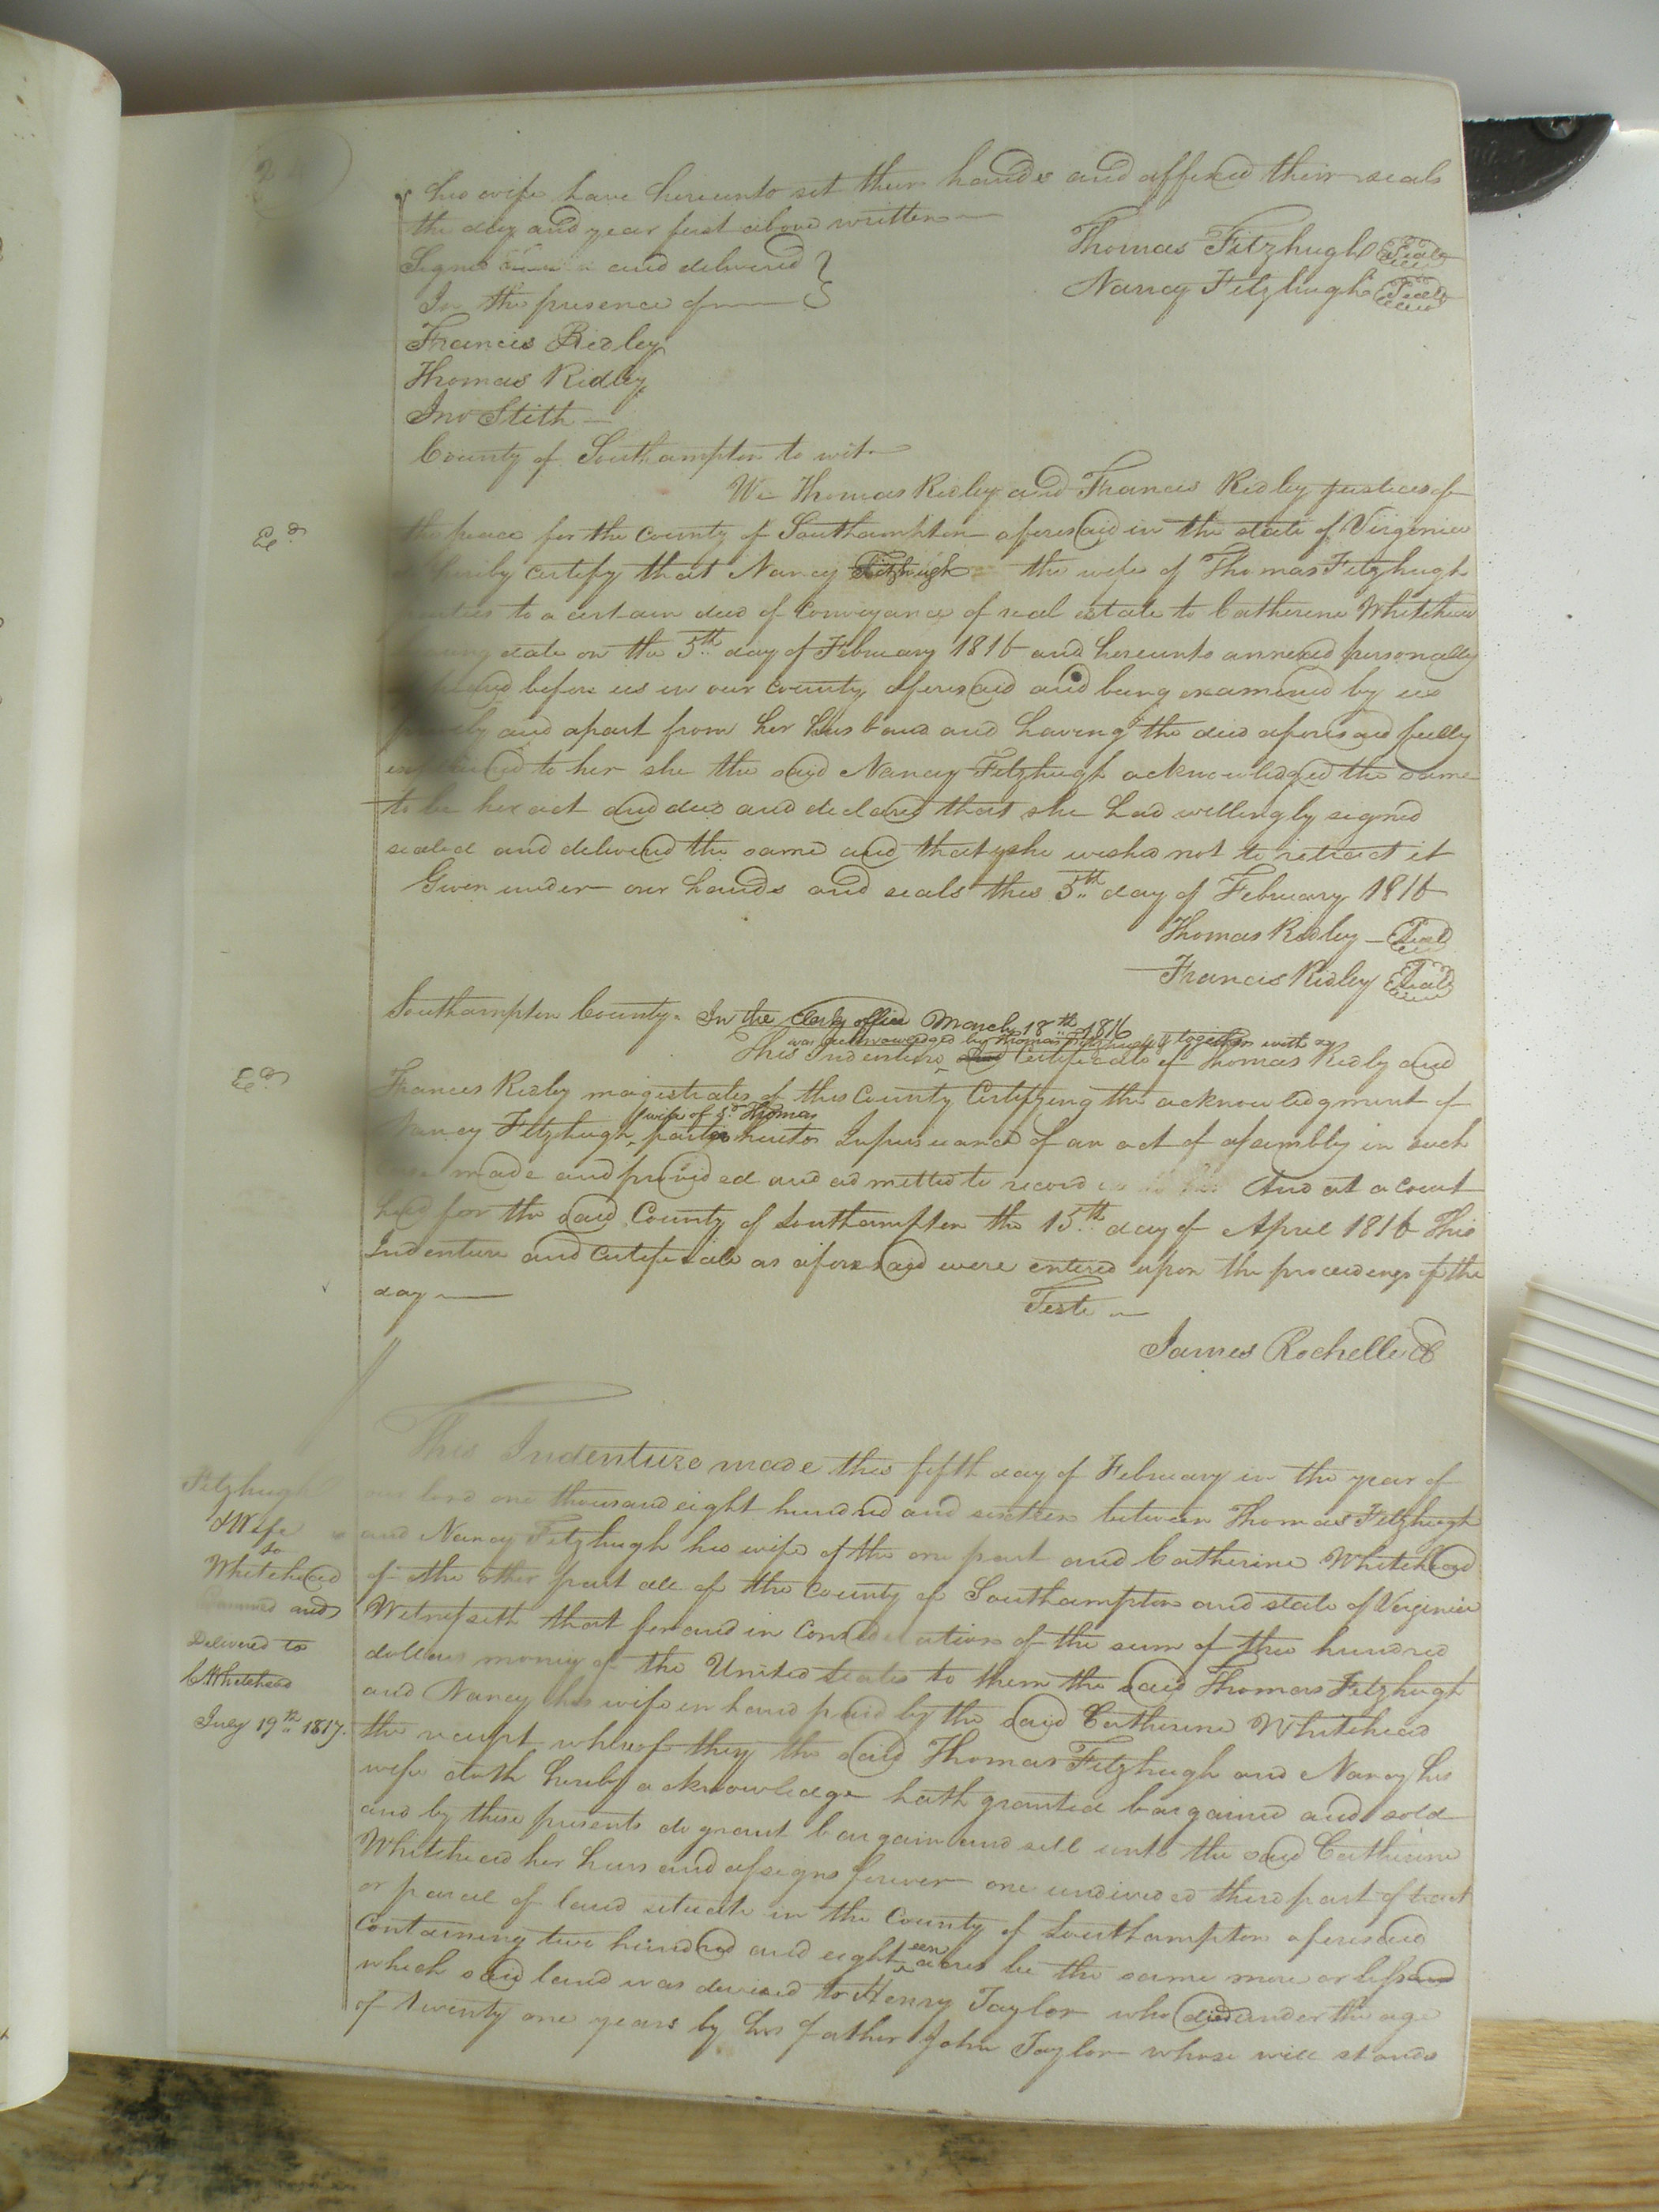 his wife have hereunto set their hands and affixed their seals
the day and year first above written
Signed and delivered
In the presence of
Thomas Fitzhugh Seal
Nancy Fitzhugh Seal
Francis Ridley
Thomas Ridley
Jno Stith
County of Southampton to wit
We Thomas Ridley and Francis Ridley justices of
Exd
the peace for the County of Southampton aforesaid in the state of Virginia
hereby certify that Nancy Fitzhugh the wife of Thomas Fitzhugh
parties to a certain deed of Conveyance of real estate to Catherine Whitehead
date on the 5th day of February 1816 and hereunto annexed personally
before us in our County aforesaid and being examined by us
privily and apart from her husband and having the deed aforesaid fully
explained to her she the said Nancy Fitzhugh acknowledged the same
to be her act and deed and declared that she had willingly signed
sealed and delivered the same and that she wishes not to retract it
Given under our hands and seals this 5th day of February 1816
Thomas Ridley Seal
Francis Ridley Seal
Southampton County. In the Clerks office March 18th 1816
was acknowledged by Thomas Fitzhugh & together with a
This Indenture and Certificate of Thomas Ridley and
Exd
Frances Ridley magistrates of this County Certifying the acknowledgment of
wife of sd Thomas
Nancy Fitzhugh parties hereto In pursuance of an act of assembly in such
made and provided and admitted to record And at a Court
held for the said County of Southampton the 15th day of April 1816 This
Indenture and Certificate as aforesaid were entered upon the proceedings of the
day
Teste
James Rochelle Cl
This Indenture made this fifth day of February in the year of
our lord one thousand eight hundred and sixteen between Thomas Fitzhugh
and Nancy Fitzhugh his wife of the one part and Catherine Whitehead
of the other part all of the County of Southampton and state of Virginia
Witnesseth that for and in Consideration of the sum of three hundred
dollars money of the United States to them the said Thomas Fitzhugh
and Nancy his wife in hand paid by the said Catherine Whitehead
the receipt whereof they the said Thomas Fitzhugh and Nancy his
wife doth hereby acknowledge hath granted bargained and sold
and by these presents do grant bargain and sell unto the said Catherine
Whitehead her heirs and assigns forever one undivided third part of tract
or parcel of land situate in the County of Southampton aforesaid
Containing two hundred and eighteen acres be the same more or less and
which said land was devised to Henry Taylor who died under the age
of twenty one years by his father John Taylor whose will stands
Fitzhugh
& Wife
to
Whitehead
Examined and
Delivered to
C Whitehead
July 19th 1817.